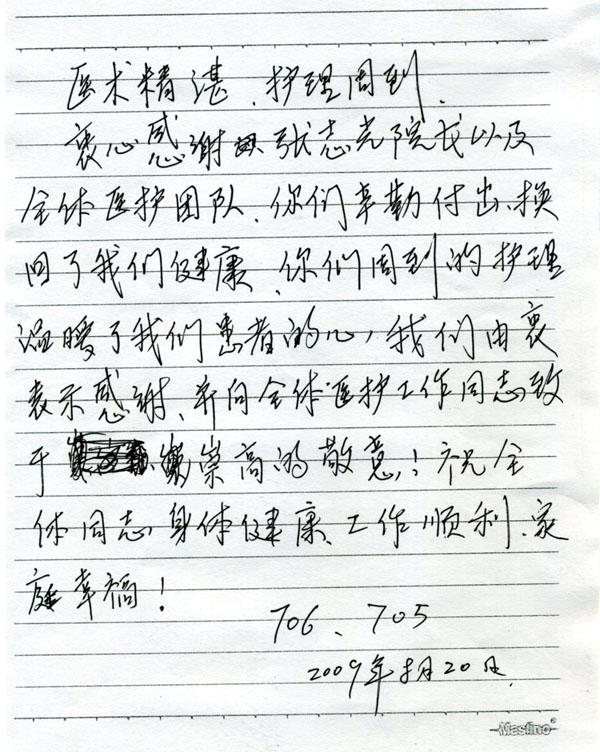 医术精湛、护理周到、
衷心感谢张志光院长以及
全体医护团队、你们辛勤付出、换
回了我们健康、你们周到的护理
温暖了我们患者的心，我们由衷
表示感谢、并向全体医护工作同志致
于崇高的敬意！祝全
体同志身体健康、工作顺利、家
庭幸福！
706、705
2009年月20日
Mastino